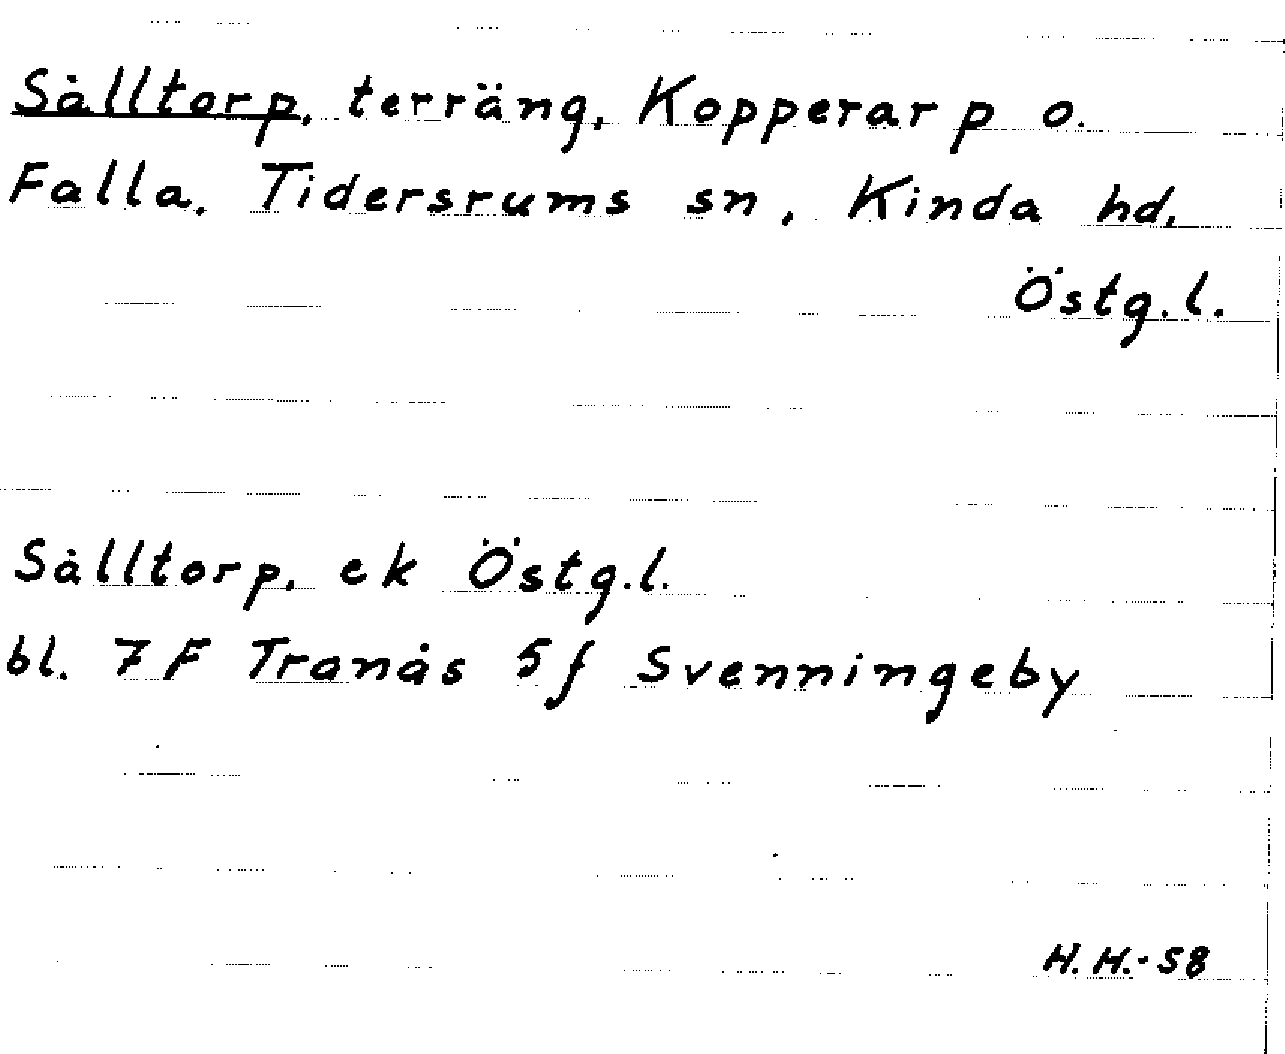 Sålltorp, terräng, Kopperarp o.
Falla, Tidersrums sn, Kinda hd,
Östg.l.
Sålltorp, ek Östg.l.
bl. 7F Tranås 5f Svenningeby
H.H.-58